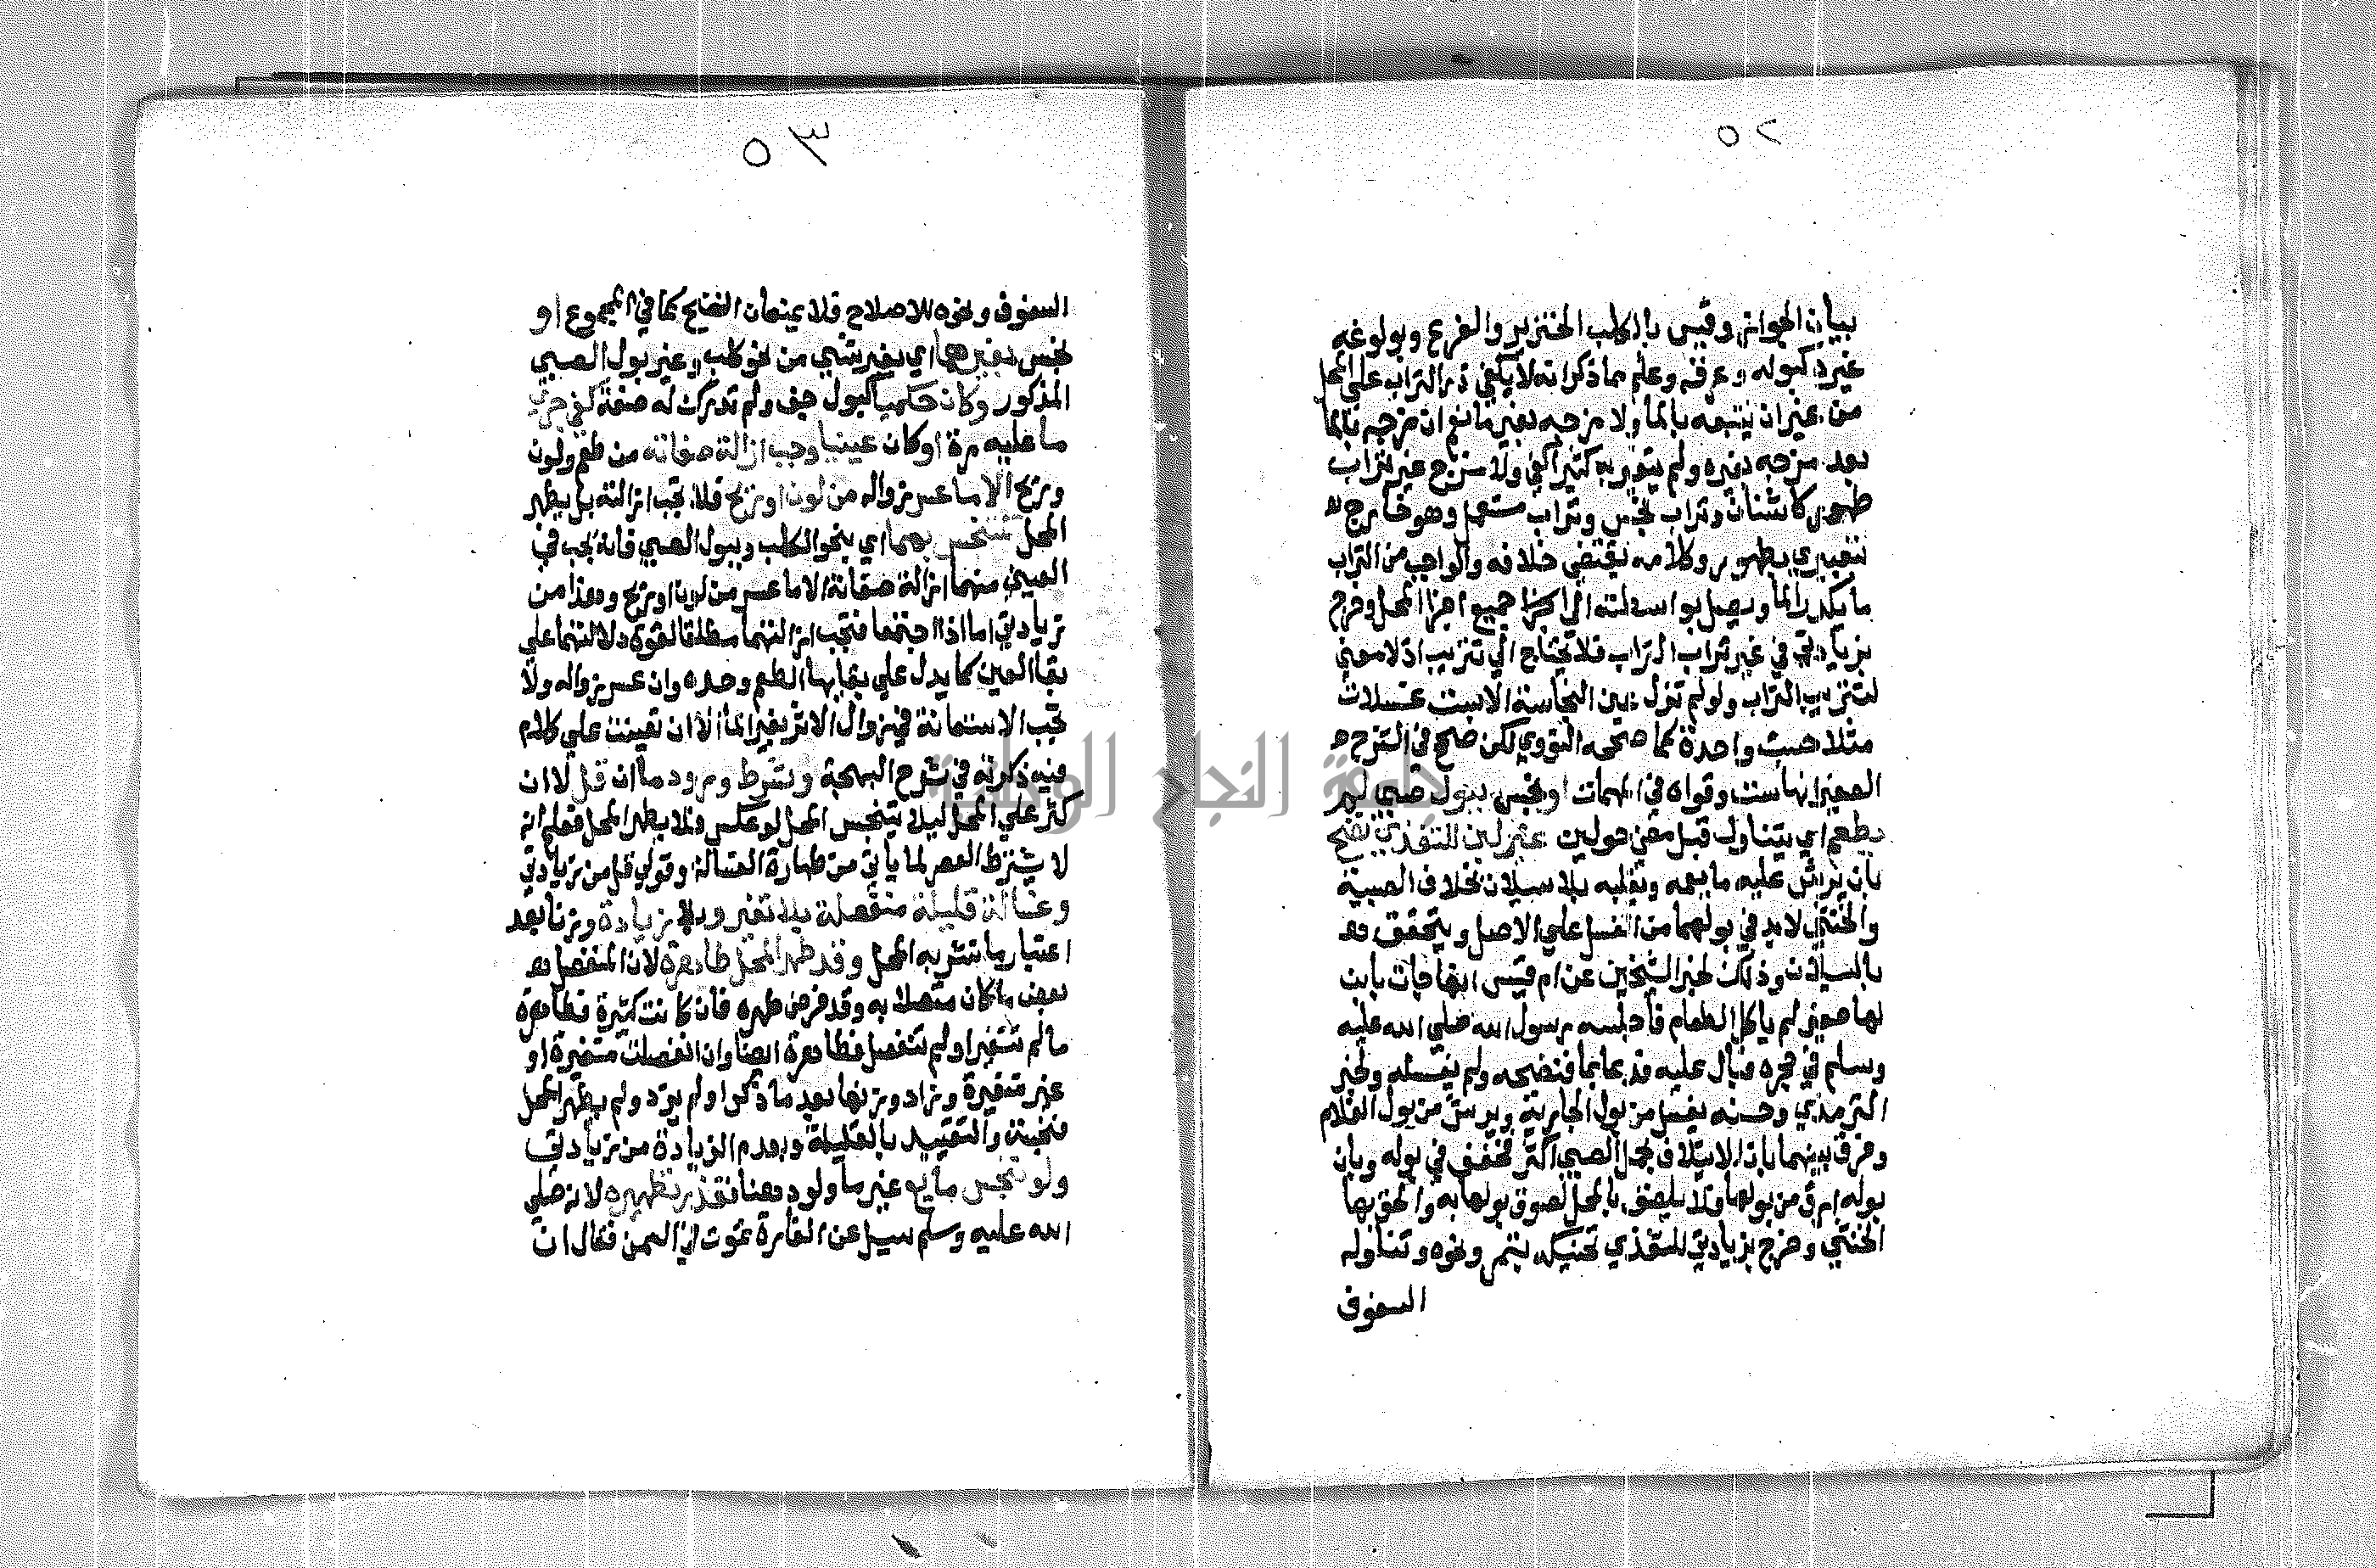 ٥٢
بيان الجواز وقيس بالكلب الخنزير والفرع وبولوغه
غيره كبوله وعرقه وعلم مما ذكر انه لا يكفي ذر التراب على المحل
من غير ان يتبعه بالما ولا مزجه بغير ما نعم ان مزجه بالما
بعد مزجه بغيره ولم يتغير به كثيرا كفى ولا مزج غير تراب
طهور كاشنان وتراب نجس وتراب مستعمل وهو خارج
بتعبيري بطهور وكلامه يقتضي خلافه والواجب من التراب
ما يكدر الما ويصل بواسطته الى جميع اجزا المحل وخرج
بزيادتي في غير تراب التراب فلا يحتاج الى تتريب اذ لا معنى
لتتريب التراب ولو لم تزل عين النجاسة الا بست غسلات
مثلا حسبت واحدة كما صححه النووي لكن صحح في الشرح
الصغير انها ست وقواه في المهمات او نجس ببول صبي لم
يطعم اي يتناول قبل مضي حولين غير لبن للتغذي نضح
بان يرش عليه ما يعمه ويغلبه بلا سيلان بخلاف الصبية
والخنثى لا بد في بولهما من الغسل على الاصل ويتحقق
بالسيلان وذلك لخبر الشيخين عن ام قيس انها جات بابن
لها صغير لم ياكل الطعام فاجلسه رسول الله صلى الله عليه
وسلم في حجره فبال عليه فدعا بما فنضحه ولم يغسله ولخبر
الترمذي وحسنه يغسل من بول الجارية ويرش من بول الغلام
وفرق بينهما بان الايتلاف بحمل الصبي اكثر فخفف في بوله وبان
بوله ارق من بولها فلا يلصق بالمحل لصوق بولها به والحق بها
الخنثى وخرج بزيادتي للتغذي تحنيكه بتمر ونحوه وتناوله
السفوف
٥٣
السفوف ونحوه للاصلاح فلا يمنعان النضح كما في المجموع او
نجس بغيرهما اي بغير شي من نحو كلب وغير بول الصبي
المذكور وكان حكميا كبول جف ولم تدرك له صفة كفى جري
ما عليه مرة او كان عينيا وجب ازالة صفاته من طعم ولون
وريح الا ما عسر زواله من لون او ريح فلا تجب ازالته بل يطهر
المحل بهما اي بنحو الكلب وببول الصبي فانه يجب في
العيني منهما ازالة صفاته الا ما عسر من لون او ريح وهذا من
زيادتي اما اذا اجتمعا فتجب ازالتهما مطلقا لقوة دلالتهما على
بقا العين كما يدل على بقايها الطعم وحده وان عسر زواله ولا
تجب الاستعانة في زوال الاثر بغير الما الا ان تعينت على كلام
فيه ذكرته في شرح البهجة وشرط ورود ما ان قل لا ان
كثر على المحل ليلا يتنجس المحل لو عكس فلا يطهر المحل فعلم انه
لا يشترط العصر لما ياتي من طهارة الغسالة وقولي قل من زيادتي
وغسالة قليلة منفصلة بلا تغير وبلا زيادة وزنا بعد
اعتبار ما يتشربه المحل وقد طهر المحل طاهرة لان المنفصل
بعض ما كان متصلا به وقد فرض طهره فان كانت كثيرة فطاهرة
ما لم تتغير او لم تنفصل فطاهرة ايضا وان انفصلت متغيرة او
غير متغيرة وزاد وزنها بعد ما ذكر او لم يزد ولم يطهر المحل
فنجسة والتقييد بالقليلة وبعدم الزيادة من زيادتي
ولو تنجس مايع غير ما ولو دهنا تعذر تطهيره لانه صلى
الله عليه وسلم سيل عن الفارة تموت في السمن فقال ان
جامعة النجاح الوطنية